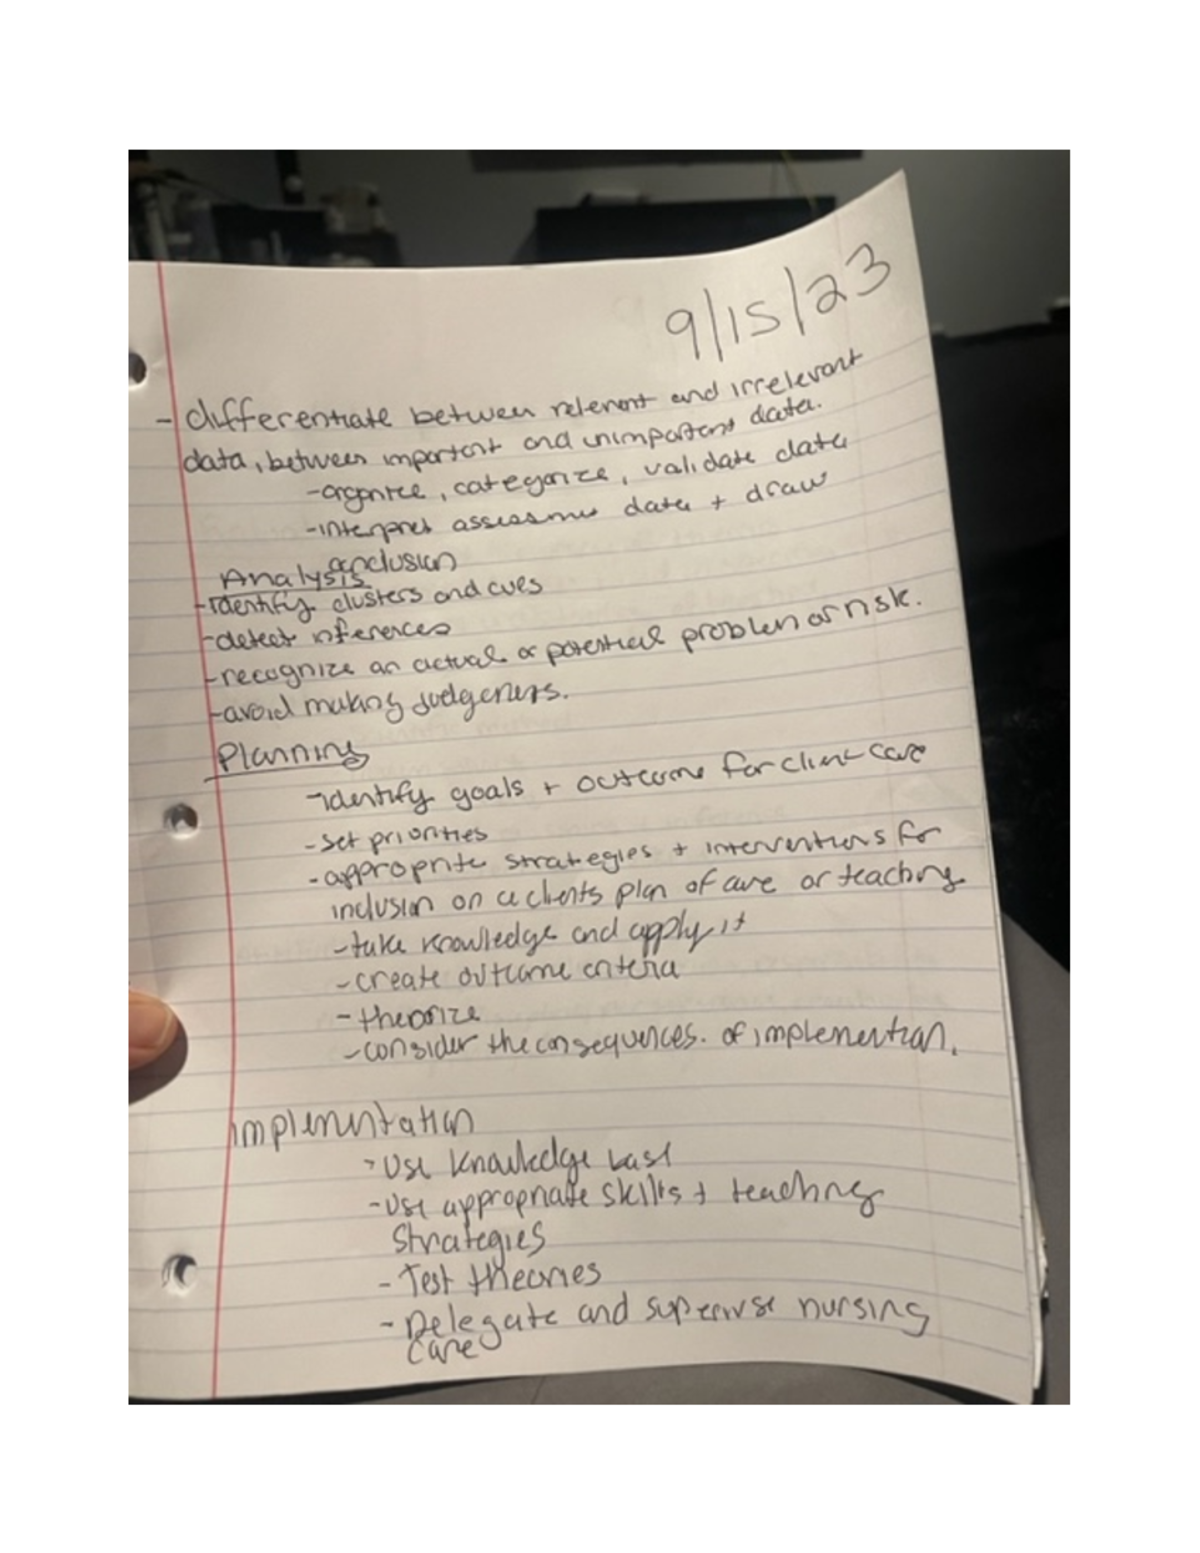 9/15/23
- differentiate between relevant and irrelevant
data, between important and unimportant data.
- organize, categorize, validate data
- interpret assessment data + draw
conclusion
Analysis
- identify clusters and cues
- detect inferences
- recognize an actual or potential problem or risk.
- avoid making judgements.
Planning
- identify goals + outcome for client care
- set priorities
- approprite strategies + interventions for
inclusion on a clients plan of care or teaching
- take knowledge and apply it
- create outcome criteria
- theorize
- consider the consequences. of implemention.
implementation
- use knowledge base
- use appropriate skills + teaching
strategies
- Test theories
- Delegate and supervise nursing
care